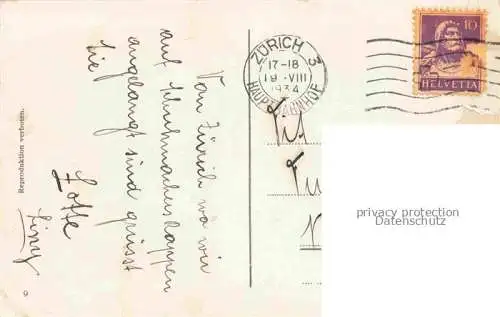 Von Zürich wo wir
auf Schuhmachers Rappen
angelangt sind grüsst
Sie
Lotte
Reproduktion verboten.
9
ZÜRICH 3
17-18
19. VIII
1934
HAUPTBAHNHOF
10
HELVETIA
privacy protection
Datenschutz